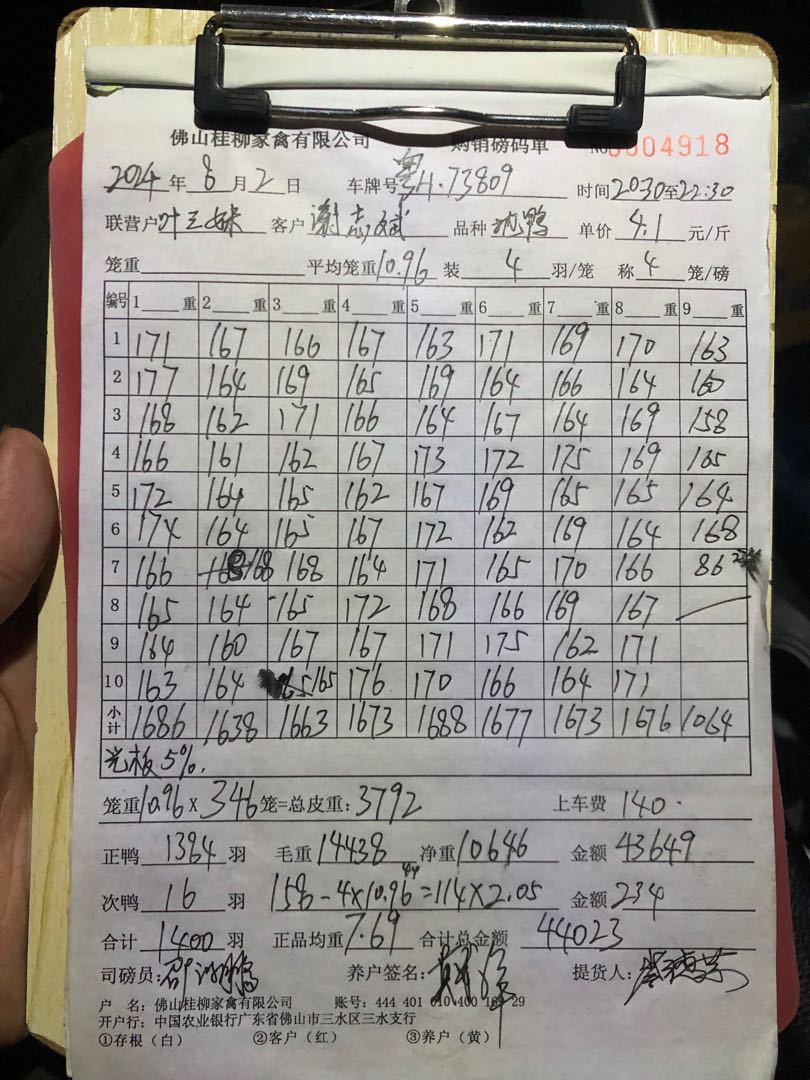 佛山桂柳家禽有限公司 购销磅码单 No 0004918
2024年8月2日 车牌号粤H·73809 时间20:30至22:30
联营户叶三妹 客户谢志斌 品种 鸭 单价4.1元/斤
笼重 平均笼重10.96 装4羽/笼 称4笼/磅
编号 1 重 2 重 3 重 4 重 5 重 6 重 7 重 8 重 9 重
1 171 167 166 167 163 171 169 170 163
2 177 164 169 165 169 164 166 164 160
3 168 162 171 166 164 167 164 169 158
4 166 161 162 167 173 172 175 169 165
5 172 164 165 162 167 169 165 165 164
6 174 164 165 167 172 162 169 164 168
7 166 168 168 164 171 165 170 166 86
8 165 164 165 172 168 166 169 167
9 164 160 167 167 171 175 162 171
10 163 164 165 176 170 166 164 171
小计 1686 1638 1663 1673 1688 1677 1673 1676 1064
光板5%.
笼重10.96×346笼=总皮重:3792 上车费140.
正鸭1384羽 毛重14438 净重10646 金额43649
次鸭16羽 158-4×10.96=114×2.05 金额234
合计1400羽 正品均重7.69 合计总金额44023
司磅员: 养户签名: 提货人:
户 名:佛山桂柳家禽有限公司 账号:444 401 010 400 29
开户行:中国农业银行广东省佛山市三水区三水支行
①存根(白) ②客户(红) ③养户(黄)